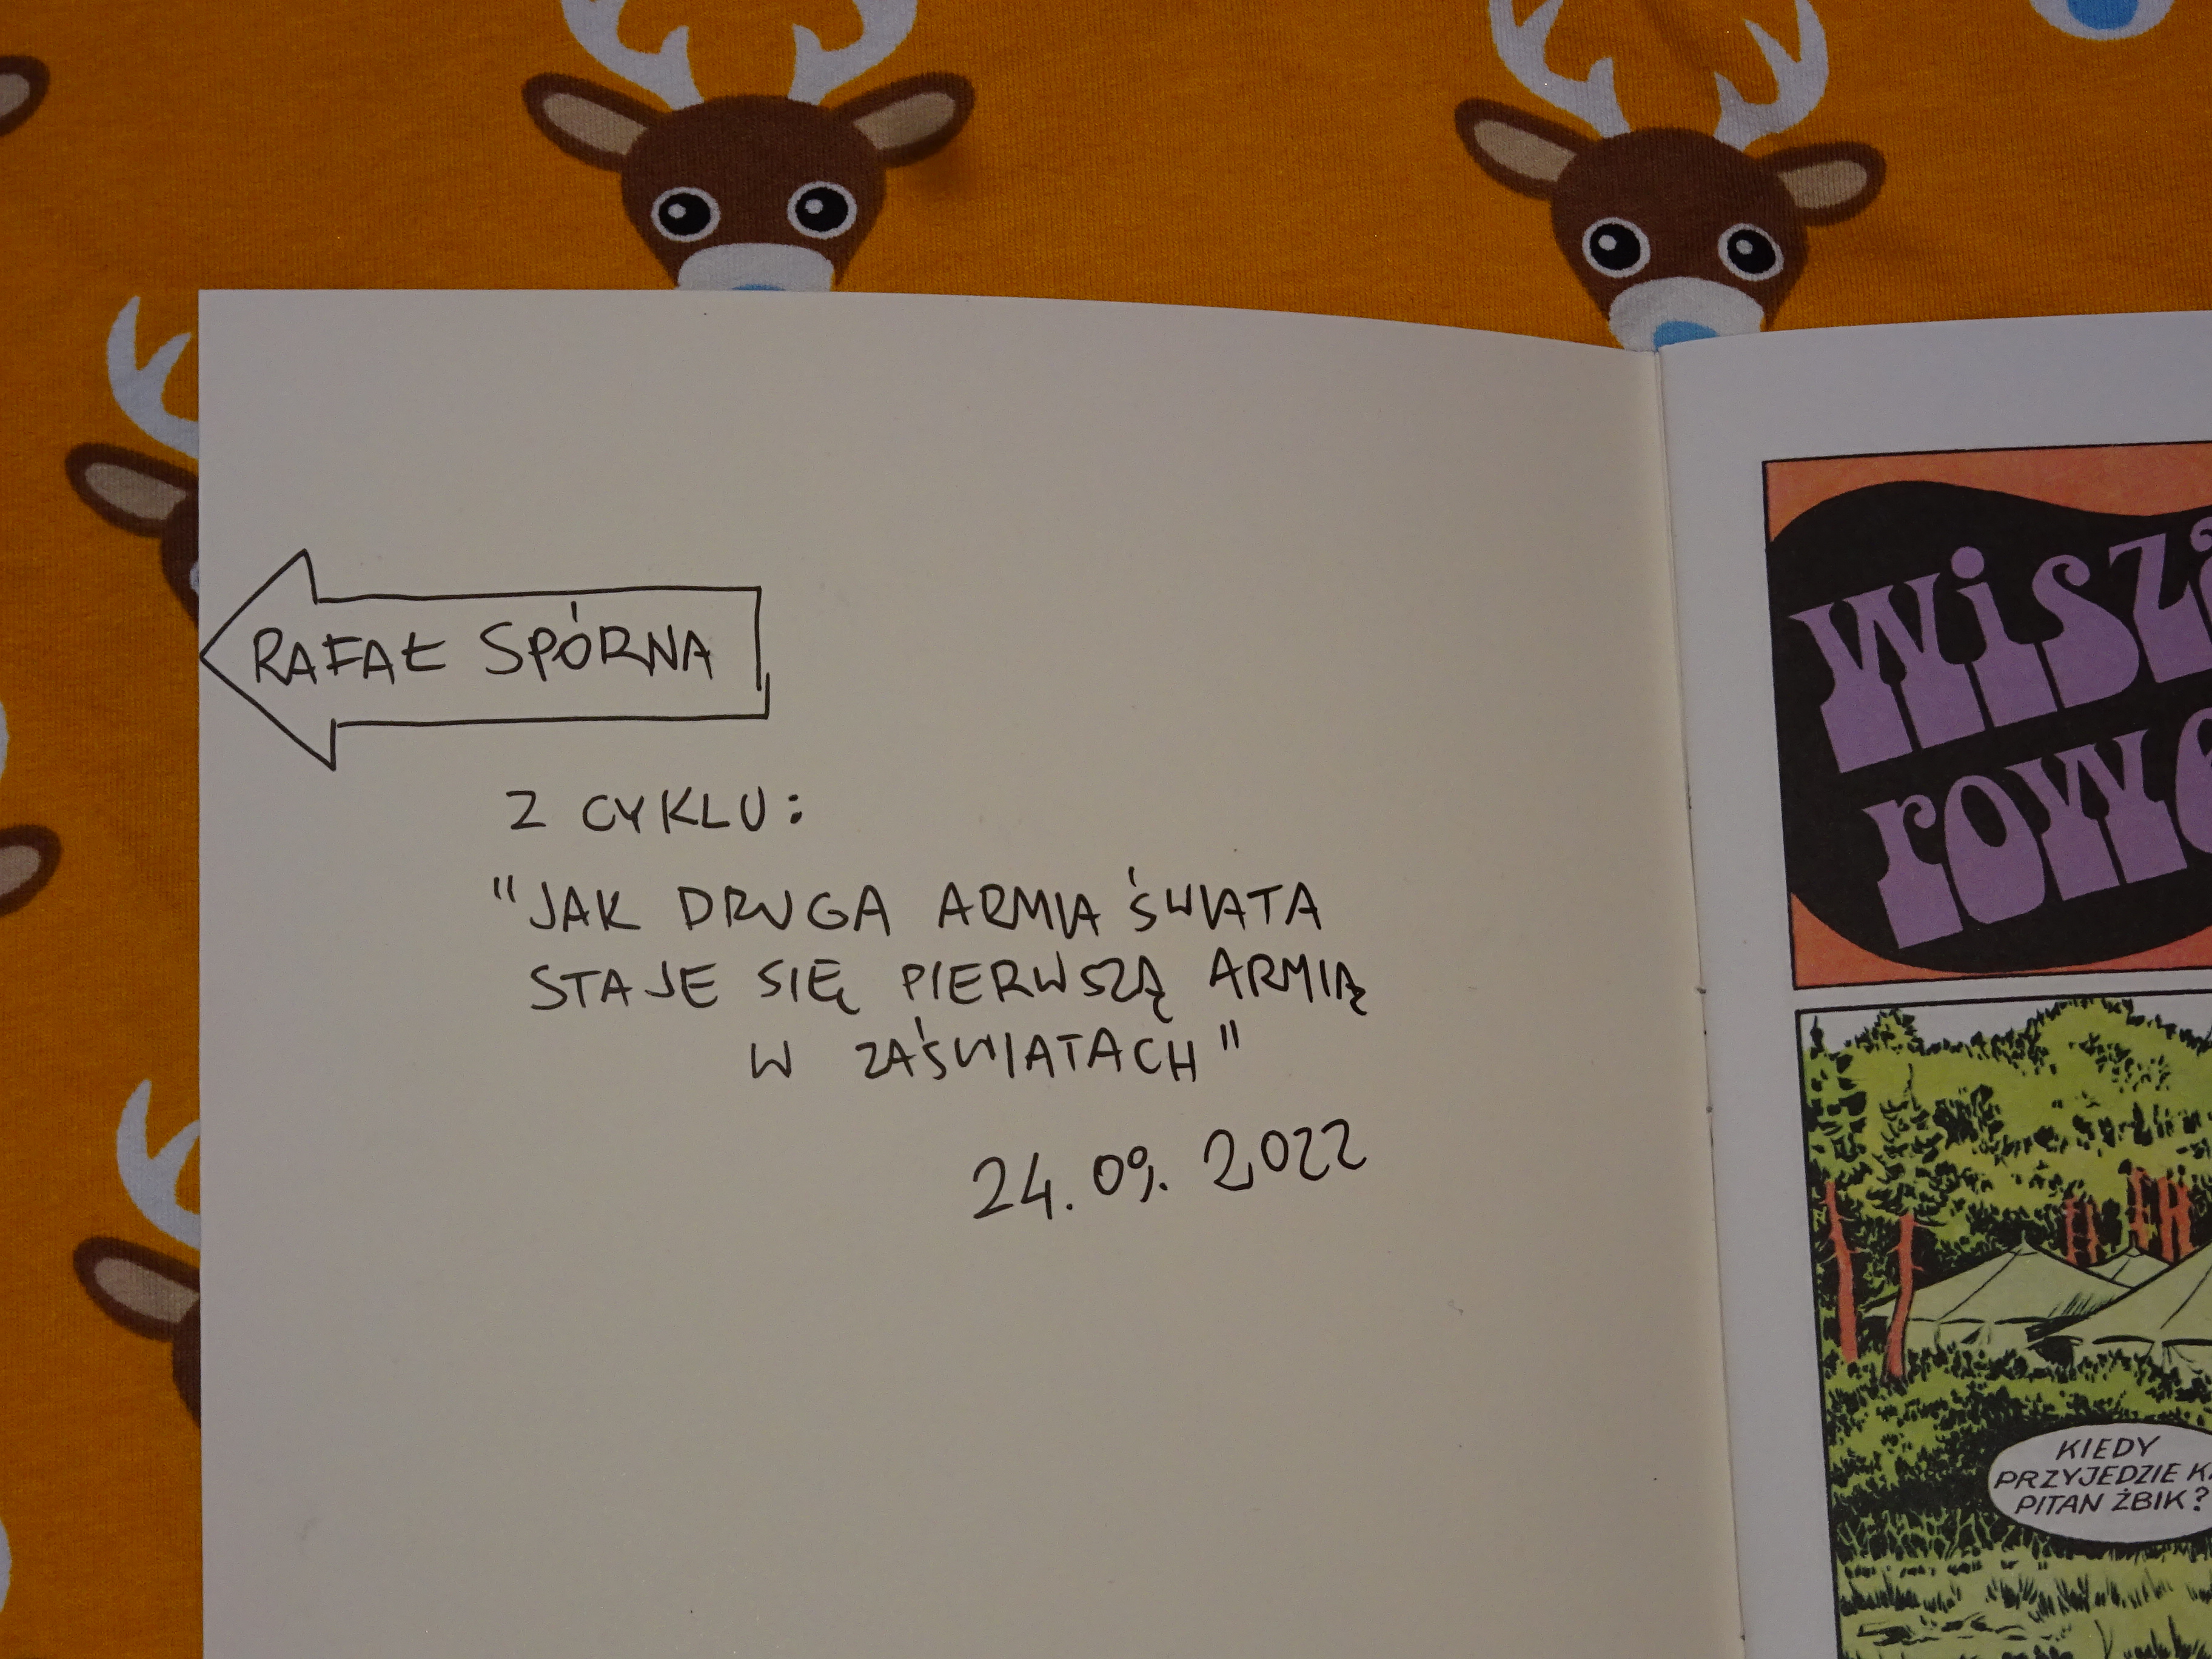 RAFAŁ SPÓRNA
Z CYKLU:
"JAK DRUGA ARMIA ŚWIATA
STAJE SIĘ PIERWSZĄ ARMIĄ
W ZAŚWIATACH"
24.09.2022
KIEDY
PRZYJEDZIE
PITAN ŻBIK?